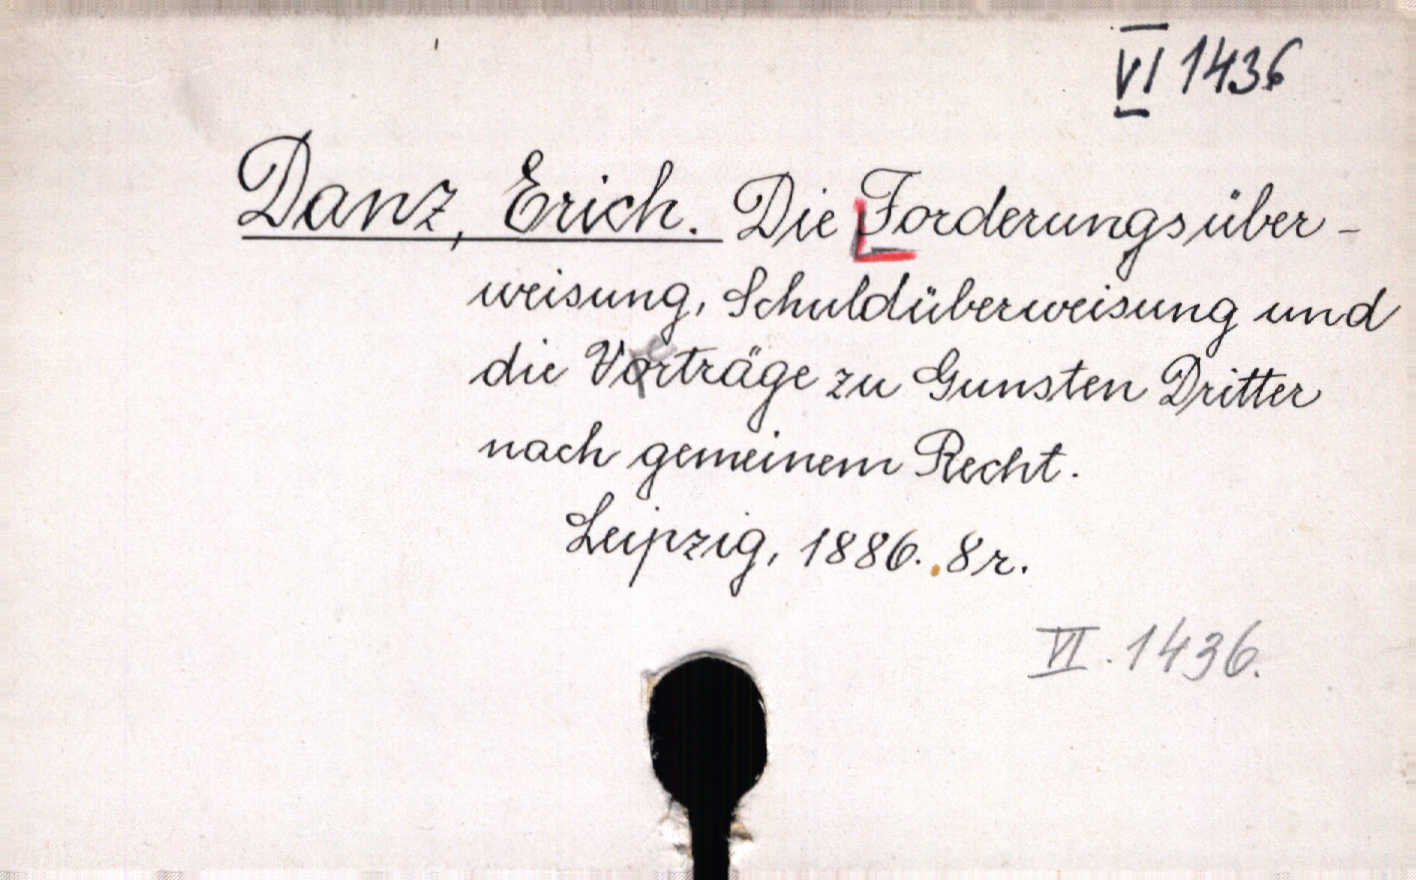 VI 1436
Danz, Erich. Die Forderungsüber-
weisung, Schuldüberweisung und
die Verträge zu Gunsten Dritter
nach gemeinem Recht.
Leipzig, 1886. 8r.
VI. 1436.